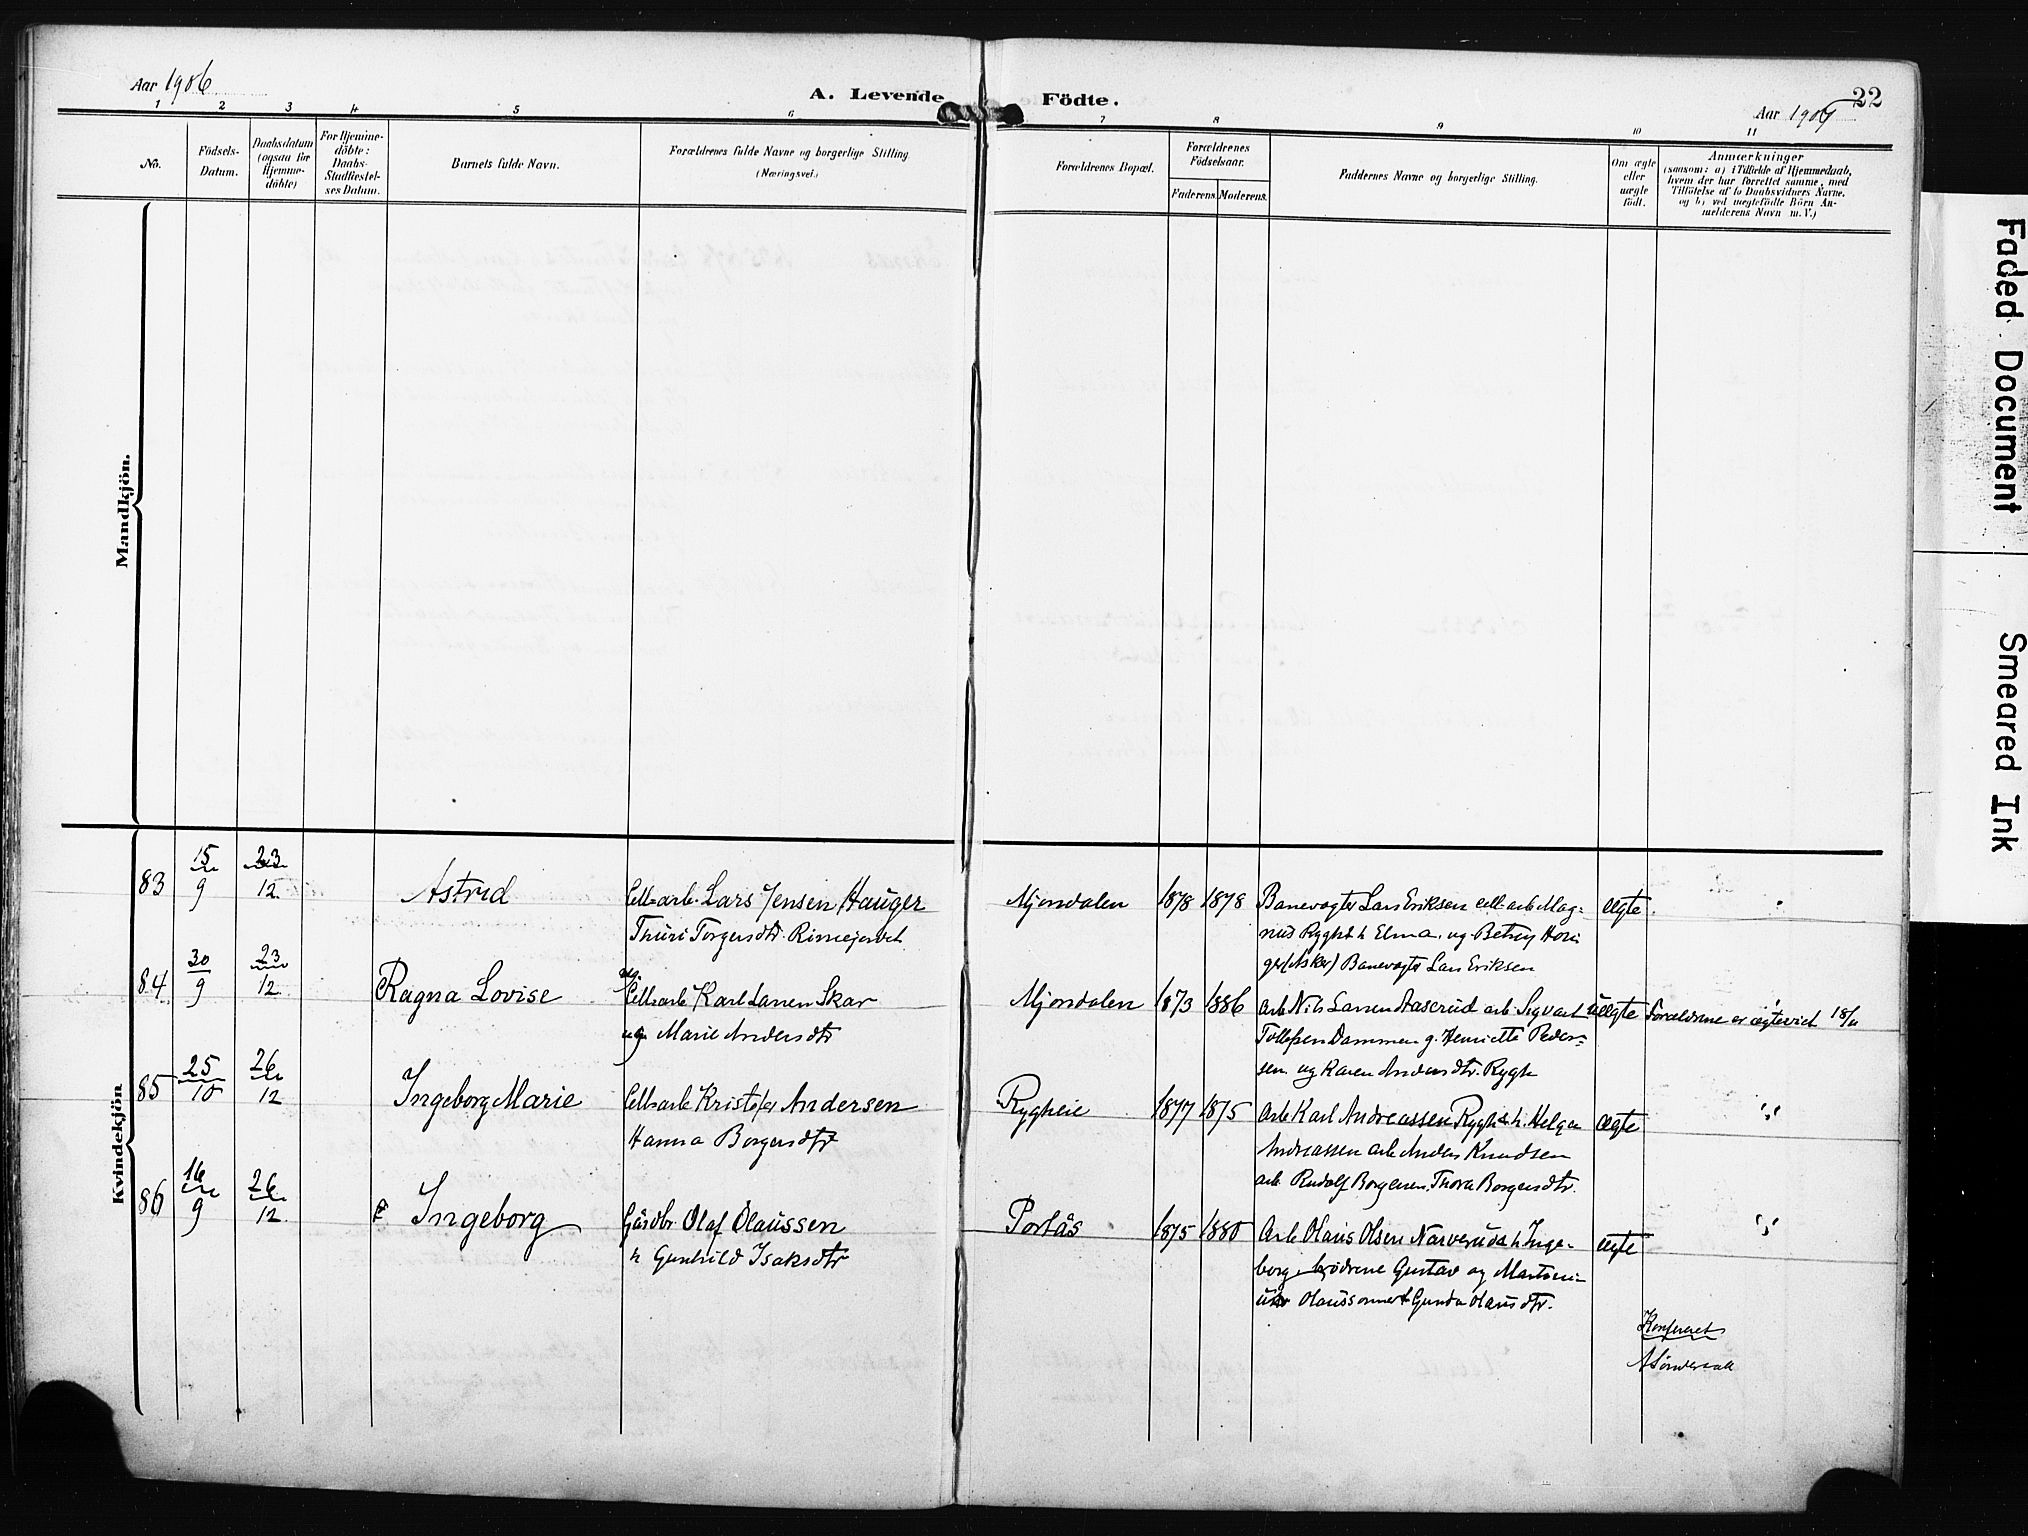 Aar 1906
A. Levende Födte.
22
Aar 1906
1 2 3 4 5 6 7 8 9 10 11
No.
Födsels-
Datum.
Daabsdatum
(ogsaa for
Hjemme-
döbte)
For Hjemme-
döbte:
Daabs-
Stadfæstel-
ses Datum.
Barnets fulde Navn.
Forældrenes fulde Navne og borgerlige Stilling
(Næringsvei.)
Forældrenes Bopæl.
Forældrenes
Födselsaar.
Faderens. Moderens.
Faddernes Navne og borgerlige Stilling.
Om ægte
eller
uægte
födt.
Anmærkninger
(saasom: a) i Tilfælde af Hjemmedaab,
hvem der har forrettet samme, med
Tilföielse af to Daabsvidners Navne.
og b) ved uægtefödte Börn An-
melderens Navn m. V.)
Mandkjön.
Kvindekjön
83 15/9 23/12 Astrid Cell.arb. Lars Jensen Hauger Mjøndalen 1878 1878 Banevogter Lars Eriksen cell.arb. Mag-
Thuri Torgersdtr.
nus Rygh h. Elma og Betsy
(Asker) Banevogter Lars Eriksen
84 30/9 23/12 Ragna Lovise Cell.arb. Karl Larsen Skar Mjøndalen 1873 1886 Arb. Nils Larsen Aaserud arb. Sigvart uægte Forældrene er ægteviet 18/11
og Marie Andersdtr
Tollefsen Dammen g. Henriette Peder-
sen og Karen Andersdtr. Rygh
85 25/10 26/12 Ingeborg Marie Cell.arb. Kristofer Andersen Rygheie 1877 1875 Arb. Karl Andreassen Rygh h. Helga ægte "
Hanna Borgersdtr
Andreassen arb. Anders Knudsen
arb. Rudolf Borgersen, Thora Borgersdtr.
86 16/9 26/12 Ingeborg Gårdbr. Olaf Olaussen Portås 1875 1880 Arb. Olaus Olsen Narverud h. Inge- ægte "
h. Gunhild Isaksdtr
borg, brødrene Gustav og
Olaussønner & Gunda Olausdtr.
Konfereret
Faded Document
Smeared Ink